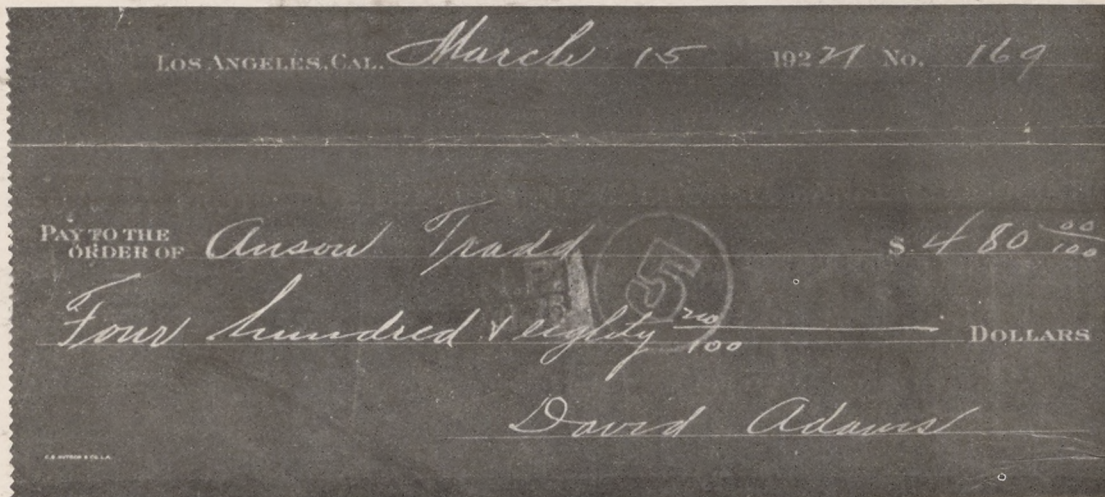 LOS ANGELES, CAL. March 15 1921 No. 169
PAY TO THE ORDER OF Anson Tradd $ 480 00/100
Four hundred & eighty no/100 DOLLARS
5
David Adams